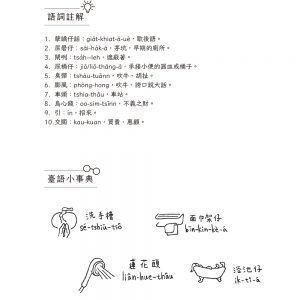 語詞註解
1. 孽譎仔話：gia̍t-khiat-á-uē，歇後語。
2. 屎礐仔：sái-ha̍k-á，茅坑，早期的廁所。
3. 閘咧：tsa̍h--leh，遮蔽著。
4. 尿桶仔：jiō/liō-tháng-á，
5. 臭彈：tshàu-tuānn，吹牛、胡扯。
6. 膨風：phòng-hong，吹牛、誇口說大話。
7. 車頭：tshia-thâu，車站。
8. 烏心錢：oo-sim-tsînn，不義之財。
9. 引：ín，招來。
10.交關：kau-kuan，買賣、惠顧。
臺語小事典
洗手槽
sé-tshiú-tsô
面巾架仔
bīn-kin-kè-á
蓮花頭
liân-hue-thâu
浴池仔
i̍k-tî-á